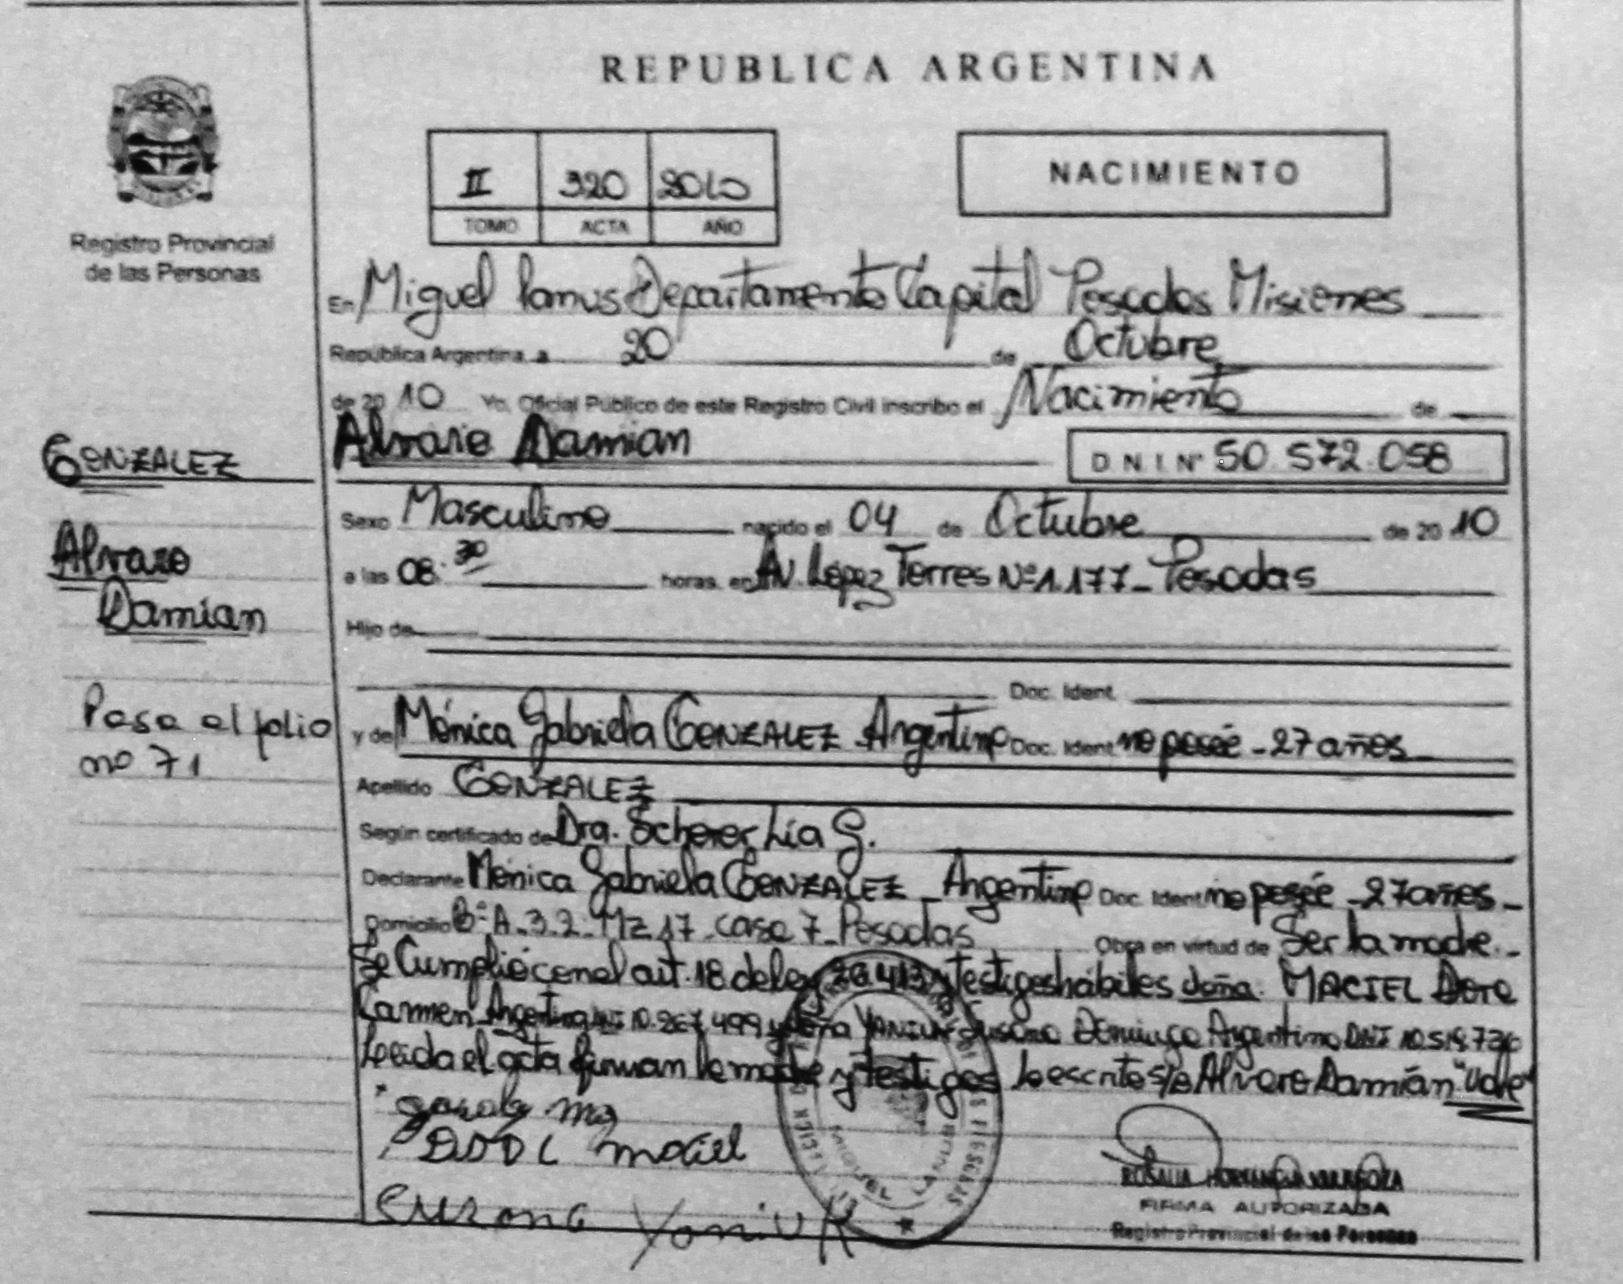 REPUBLICA ARGENTINA
Registro Provincial
de las Personas
II 320 2010
TOMO ACTA AÑO
NACIMIENTO
En Miguel Lanus Departamento Capital Posadas Misiones
República Argentina a 20 de Octubre
de 20 10 Yo, Oficial Público de este Registro Civil inscribo el Nacimiento de
Alvaro Damian
D N I Nº 50.572.058
GONZALEZ
Alvaro
Damian
Pasa al folio
nº 71
Sexo Masculino nacido el 04 de Octubre de 20 10
a las 08:30 horas en Av. López Torres Nº 1.177 - Posadas
Hijo de
Doc. Ident.
y de Mónica Gabriela GONZALEZ Argentina Doc. Ident. no poseé - 27 años
Apellido GONZALEZ
Según certificado de Dra. Scherer Lía G.
Declarante Mónica Gabriela GONZALEZ Argentina Doc. Ident. no poseé - 27 años -
Domicilio Bº A-3.2 - Mz 17 - casa 7 - Posadas Obra en virtud de Ser la madre. -
Se Cumplió con el art. 18 de ley 26.413 y testigos hábiles doña: MACIEL Dora
Carmen Argentina DNI 10. 499 y doña YANIUK Susana Dominga Argentina DNI
Leída el acta firman la madre y testigos lo escrito s/r Alvaro Damián "Vale"
Maciel
Susana Yaniuk
MIGUEL LANUS
ROSALIA
FIRMA AUTORIZADA
Registro Provincial de las Personas